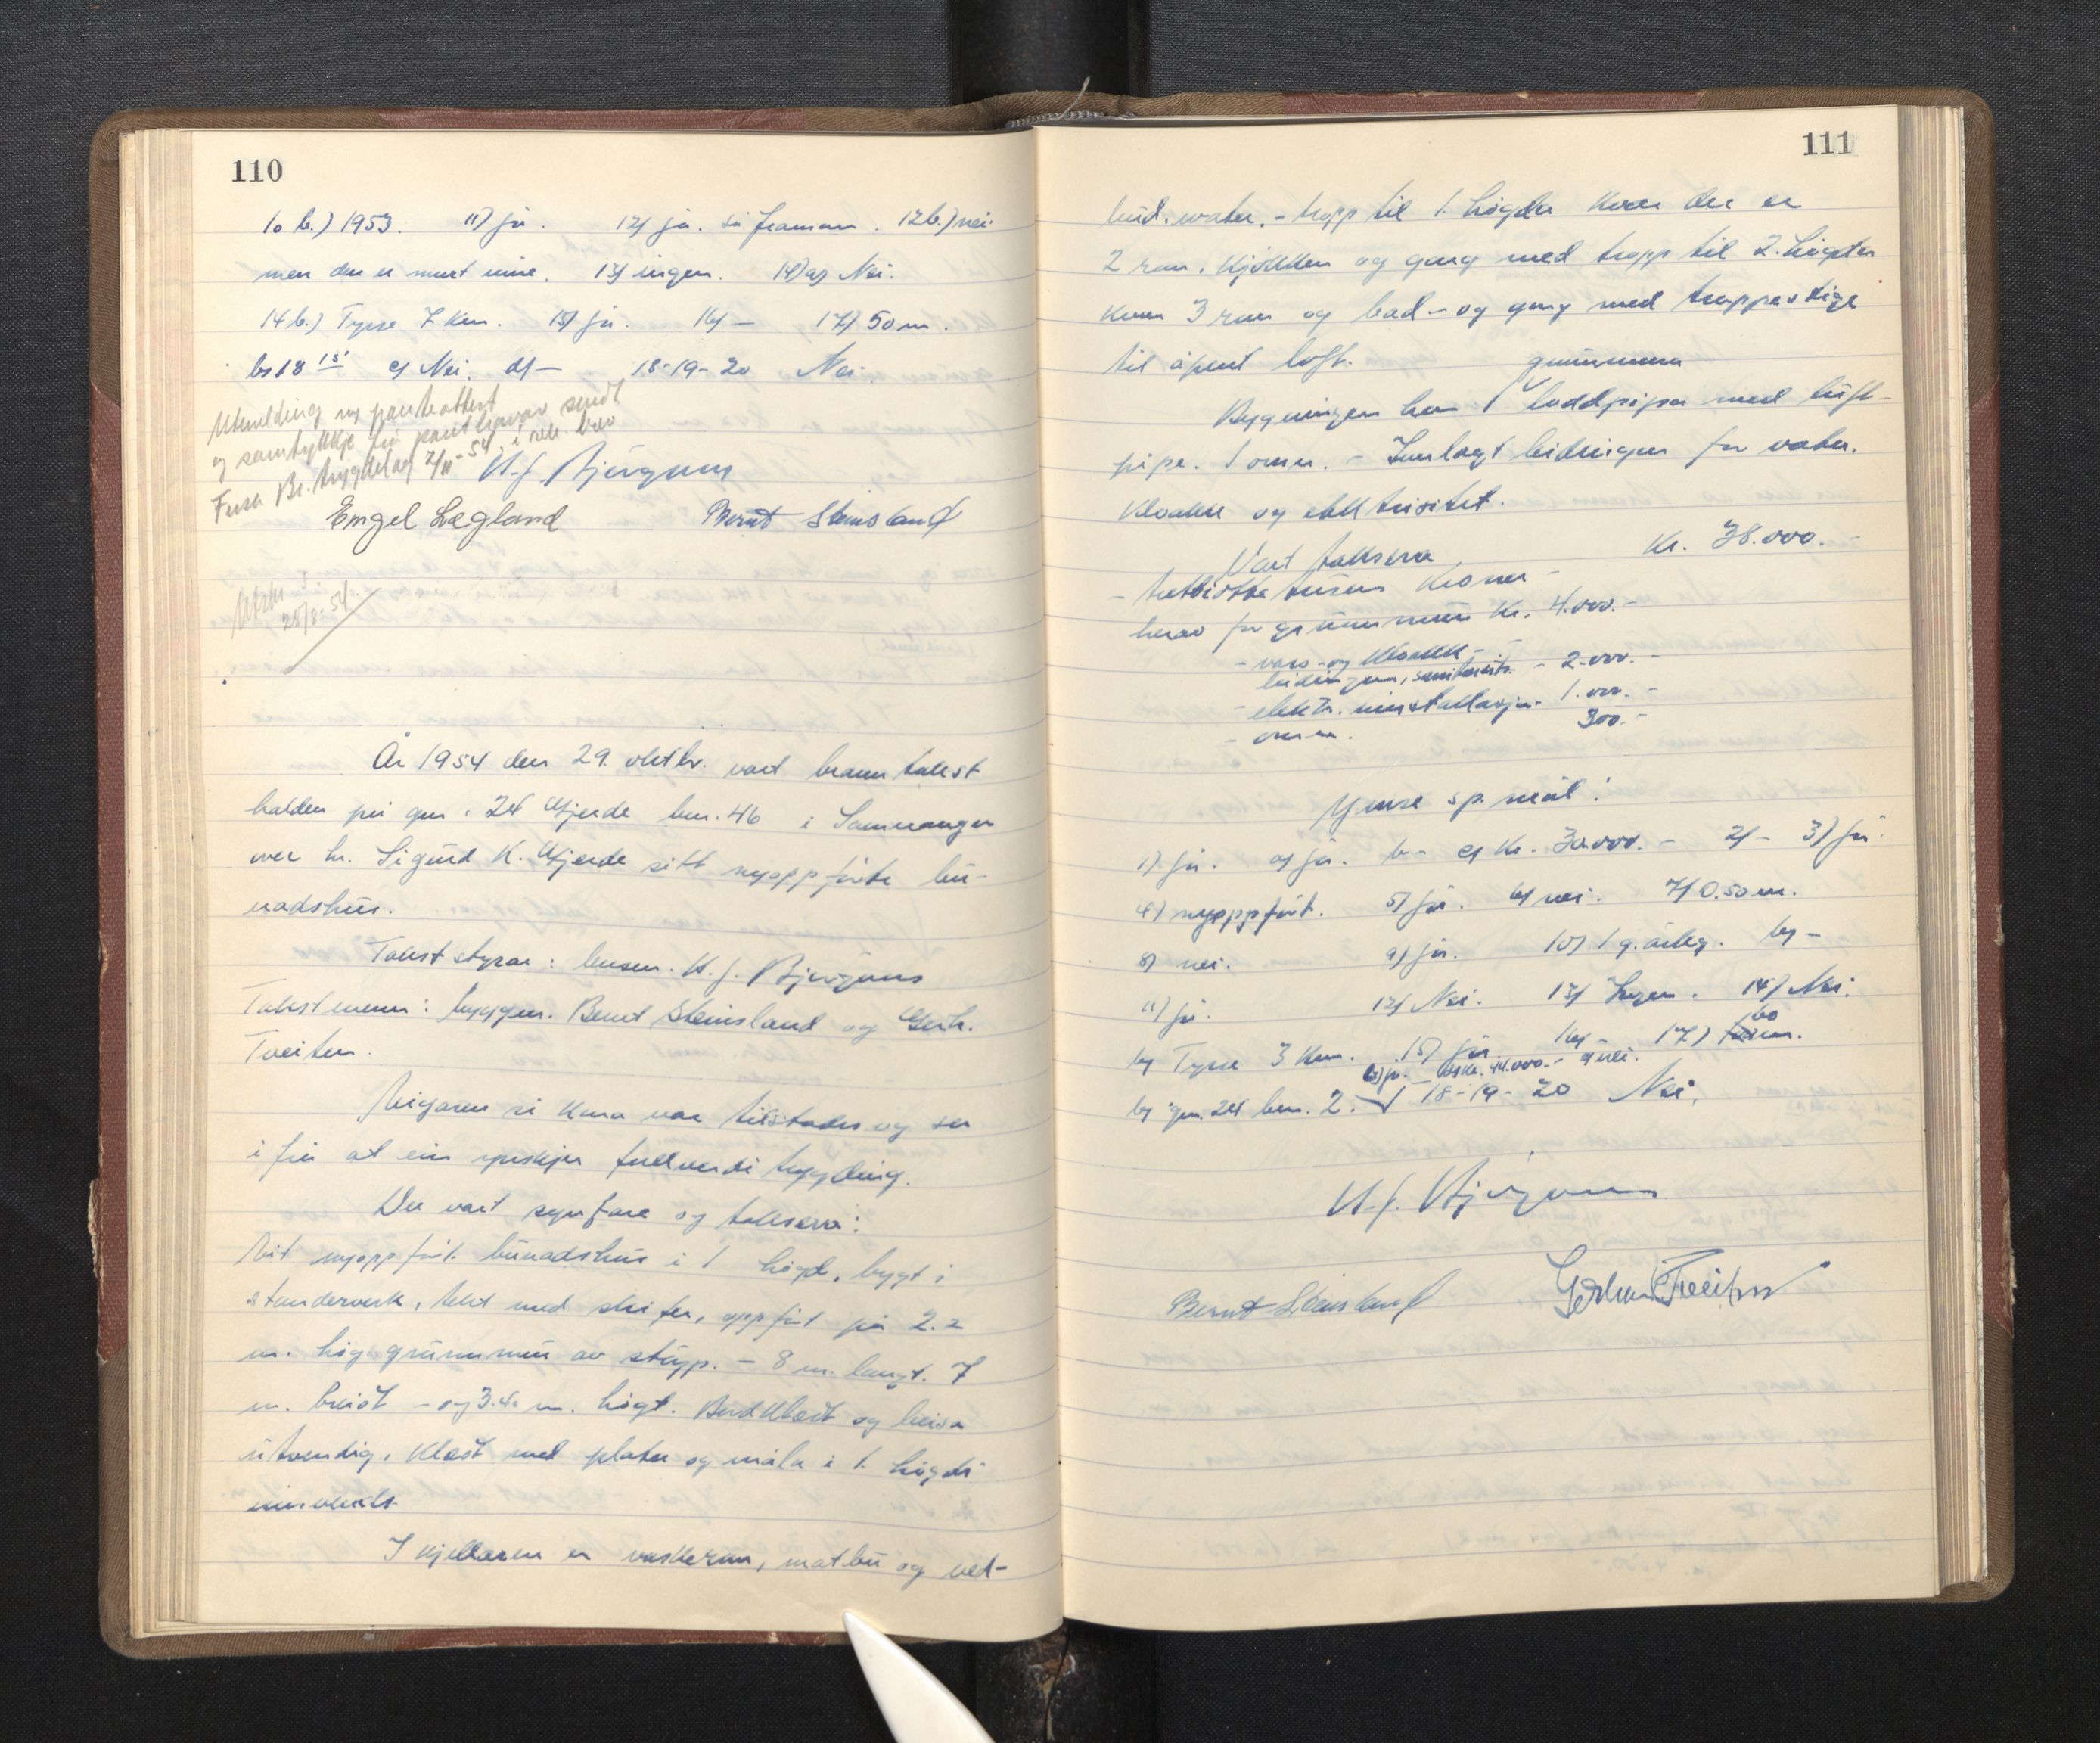 110
10 b.) 1953. 11) ja. 12) ja. sjå framan. 12b.) nei.
men der er murt inne. 13) ingen. 14) a) Nei.
14 b.) Tysse 7 km. 15) ja. 16) — 17) 50 m.
b) 18 c) Nei. d) — 18-19-20 Nei.
Utmelding og panteattest
og samtykkje frå panthavar sendt
Fusa Br. trygdelag 2/11-54 i rek. brev
Engel Lægland Bernt Steinsland
Utskr.
28/8-54.
År 1954 den 29. oktbr. vart branntakst
halden på gnr. 24 Gjerde bnr. 46 i Samnanger
over hr. Sigurd K. Gjerde sitt nyoppførte bu-
nadshus.
Takststyrar: lensm.
Takstmenn: byggm. Bernt Steinsland og Gerh.
Tveiten.
Eigaren si kona var tilstades og sa
i frå at ein ynskjer fullverdi trygding.
Der vart synfare og taksera:
Eit nyoppført bunadshus i 1 høgd, bygt i
standerverk, tekt med skifer, oppført på 2.2
m. høg grunnmur av støyp. - 8 m. langt. 7
m. breidt - og 3.40 m. høgt. Bordklædt og beisa
utvendig. Klædt med plater og måla i 1. høgdi
innvendes.
I kjellaren er vaskerom, matbu og ved-
111
bud. vatn. - trapp til 1. høgda kvar der er
2 rom, kjøkken og gang med trapp til 2. høgda
kvar 3 rom og bad - og gang med trappestige
til åpent loft.
grunnmura
Bygningen har 1 loddpipa med luft-
pipe. 1 omn. - Innlagt leidningar for vatn.
kloakk og elektrisitet.
Vart taksera Kr. 38.000.-
- trettiåtte tusen kroner -
herav for grunnmur Kr. 4.000.-
- vass- og kloakk-
leidningar, sanitæruts. - 2.000.-
- elektr. installasjon - 1.000.-
- omn. 300.-
Ymse sp.mål:
1) ja. a) ja. b - c) Kr. 30.000.- 2) - 3) ja.
4) nyoppført. 5) ja. 6) nei. 7) 0.50 m.
8) nei. 9) ja. 10) 1 g. årleg. b) -
11) ja. 12) Nei. 13) Ingen. 14) Nei.
60
b) Tysse 3 km. 15) ja. 16) 17) m.
b) ja. kr. 44.000.- c) nei.
b) gnr. 24 bnr. 2. 18-19-20 Nei.
Bernt Steinsland Gerhard Tveiten